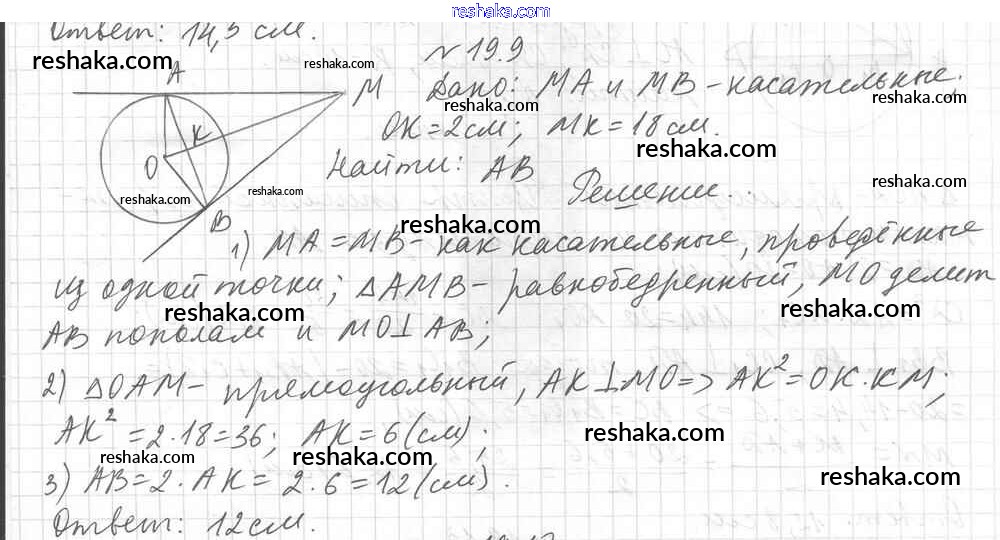 reshaka.com
Ответ: 14,5 см.
№ 19.9
reshaka.com
reshaka.com
A
M
Дано: MA и MB – касательные;
reshaka.com
reshaka.com
OK = 2 см; MK = 18 см.
reshaka.com
K
O
Найти: AB
reshaka.com
reshaka.com
reshaka.com
Решение.
B
reshaka.com
1) MA = MB – как касательные, проведённые
из одной точки; △AMB – равнобедренный, MO делит
reshaka.com
reshaka.com
AB пополам и MO⊥AB;
2) △OAM – прямоугольный, AK⊥MO => AK² = OK·KM;
AK² = 2·18 = 36; AK = 6 (см);
reshaka.com
reshaka.com
reshaka.com
3) AB = 2·AK = 2·6 = 12 (см).
reshaka.com
Ответ: 12 см.